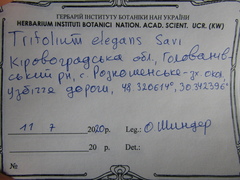 ГЕРБАРІЙ ІНСТИТУТУ БОТАНІКИ НАН УКРАЇНИ
HERBARIUM INSTITUTI BOTANICI NATION. ACAD. SCIENT. UCR. (KW)
Trifolium elegans Savi
Кіровоградська обл., Голованів-
ський р-н, с. околі,
узбіччя дороги, 48.320614°, 30.342396°
11 7 2020р. Leg.: О. Шиндер
20 р. Det.:
№